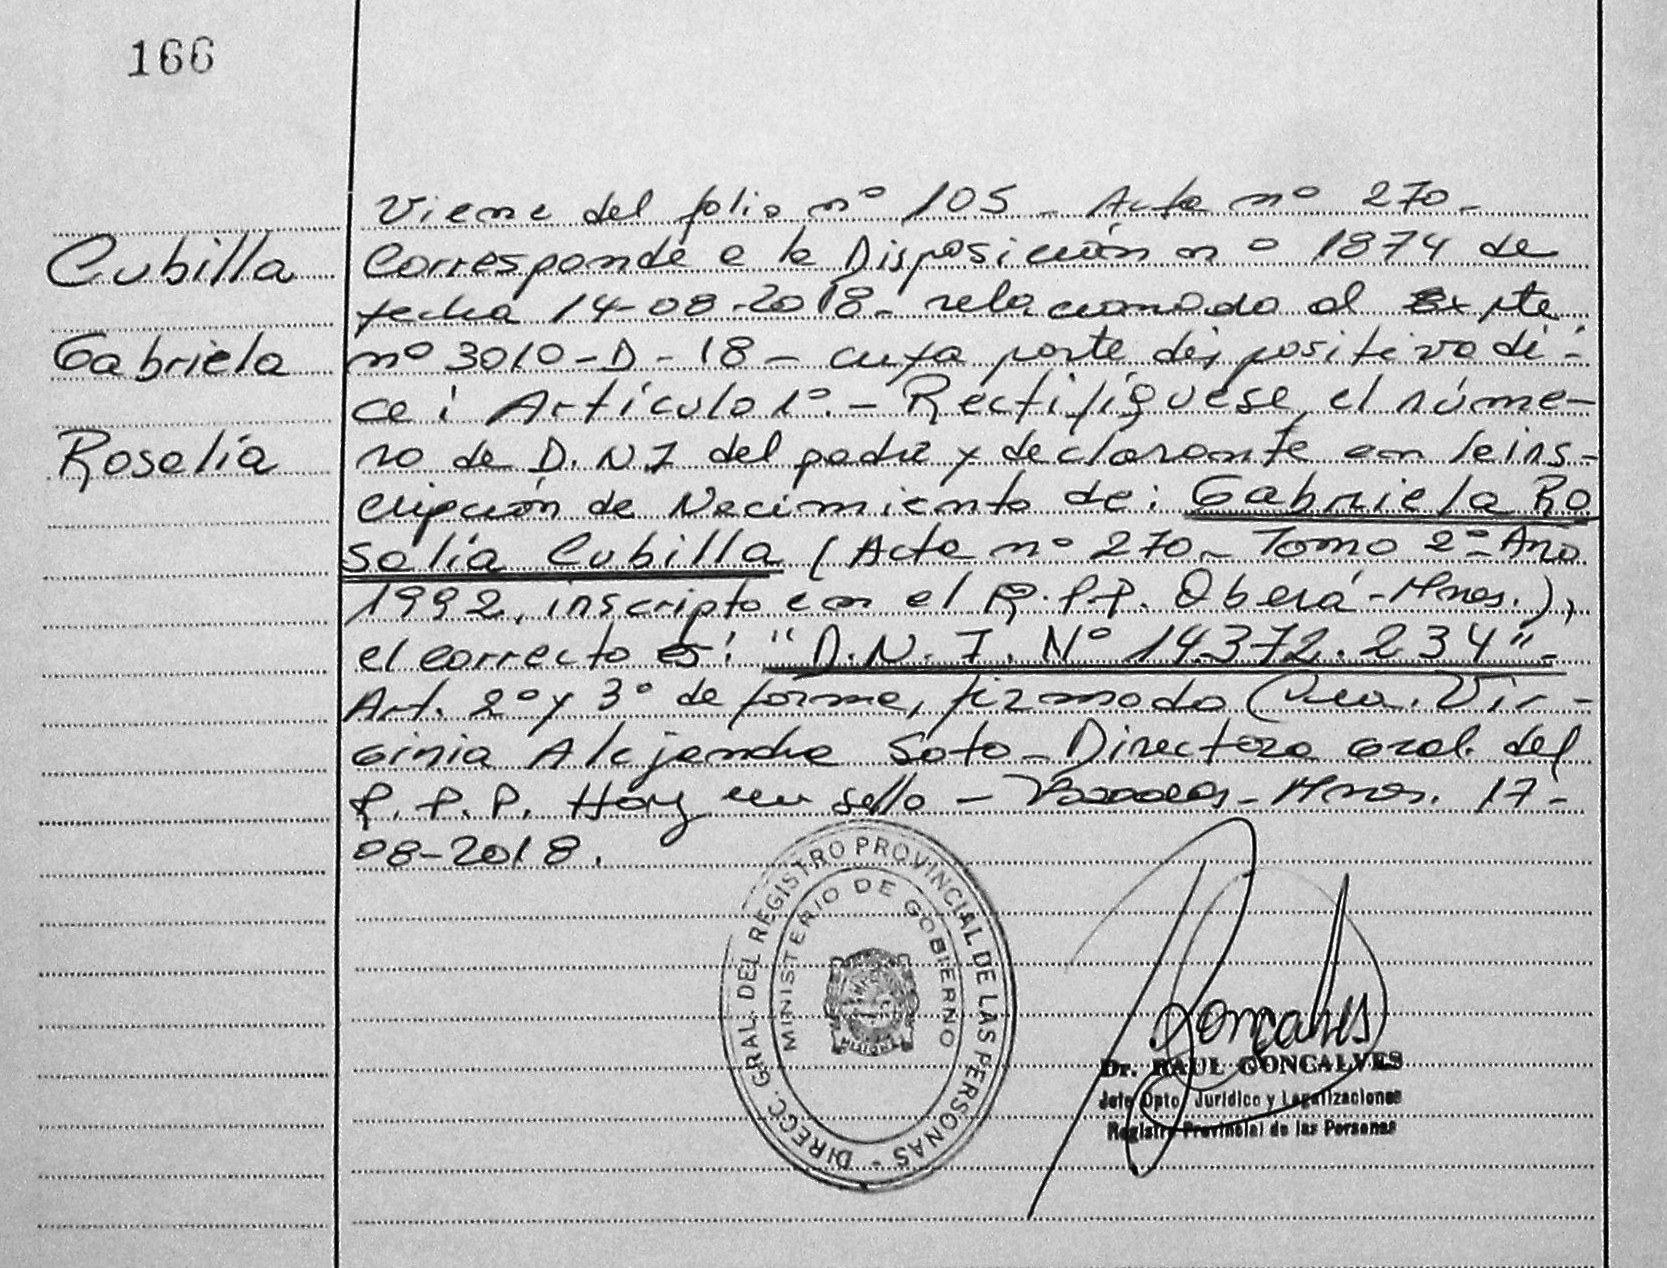 166
Viene del folio nº 105 - Acta nº 270 -
Cubilla
Corresponde a la Disposición nº 1874 de
fecha 14-08-2018 - relacionado al Expte.
Gabriela
nº 3010-D-18 - cuya parte dispositiva di-
ce: Artículo 1º. - Rectifíquese, el núme-
Rosalía
ro de D.N.I del padre y declarante en la ins-
cripción de Nacimiento de: Gabriela Ro
salía Cubilla (Acta nº 270 - Tomo 2º - Año
1992, inscripto en el R.P.P. Oberá - Mnes.),
el correcto es: "D.N.I. Nº 14.372.234" -
Art. 2º y 3º de forma, firmado Vir-
ginia Alejandra Soto - Directora Gral. del
R.P.P. Hay un sello - Posadas - Mnes. 17-
08-2018.
DIRECC. GRAL. DEL REGISTRO PROVINCIAL DE LAS PERSONAS -
MINISTERIO DE GOBIERNO
MISIONES
Goncalves
Dr. RAUL GONCALVES
Jefe Dpto. Jurídico y Legalizaciones
Registro Provincial de las Personas